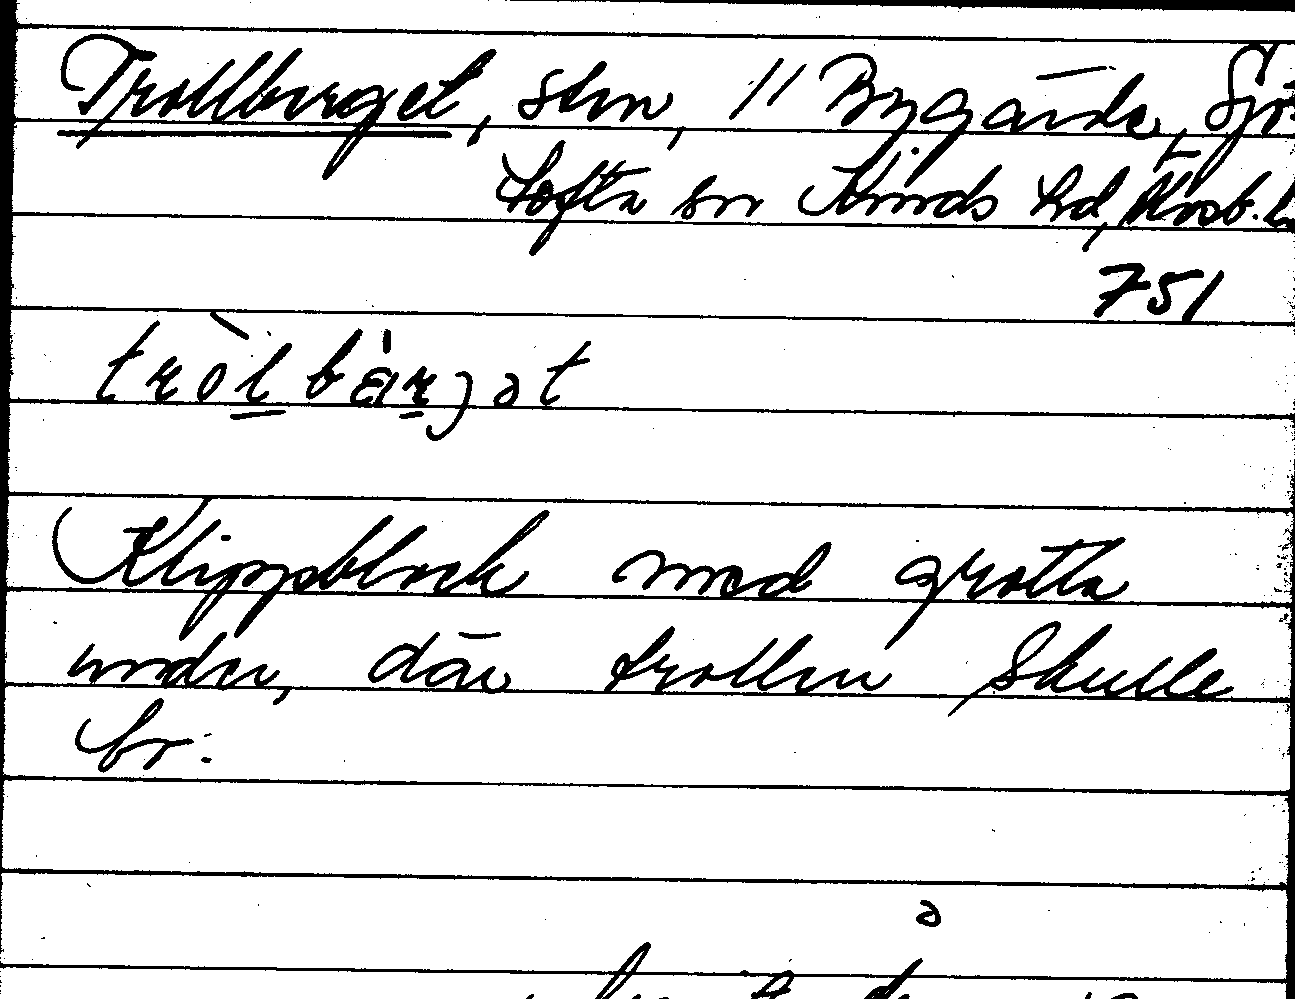 Trollberget, sten, 11 Bygärde, Sjö-
tofta sn Kinds hd, Älvsb. l
751
tròl bär̀gət
Klippblock med grotta
under, där trollen skulle
bo.